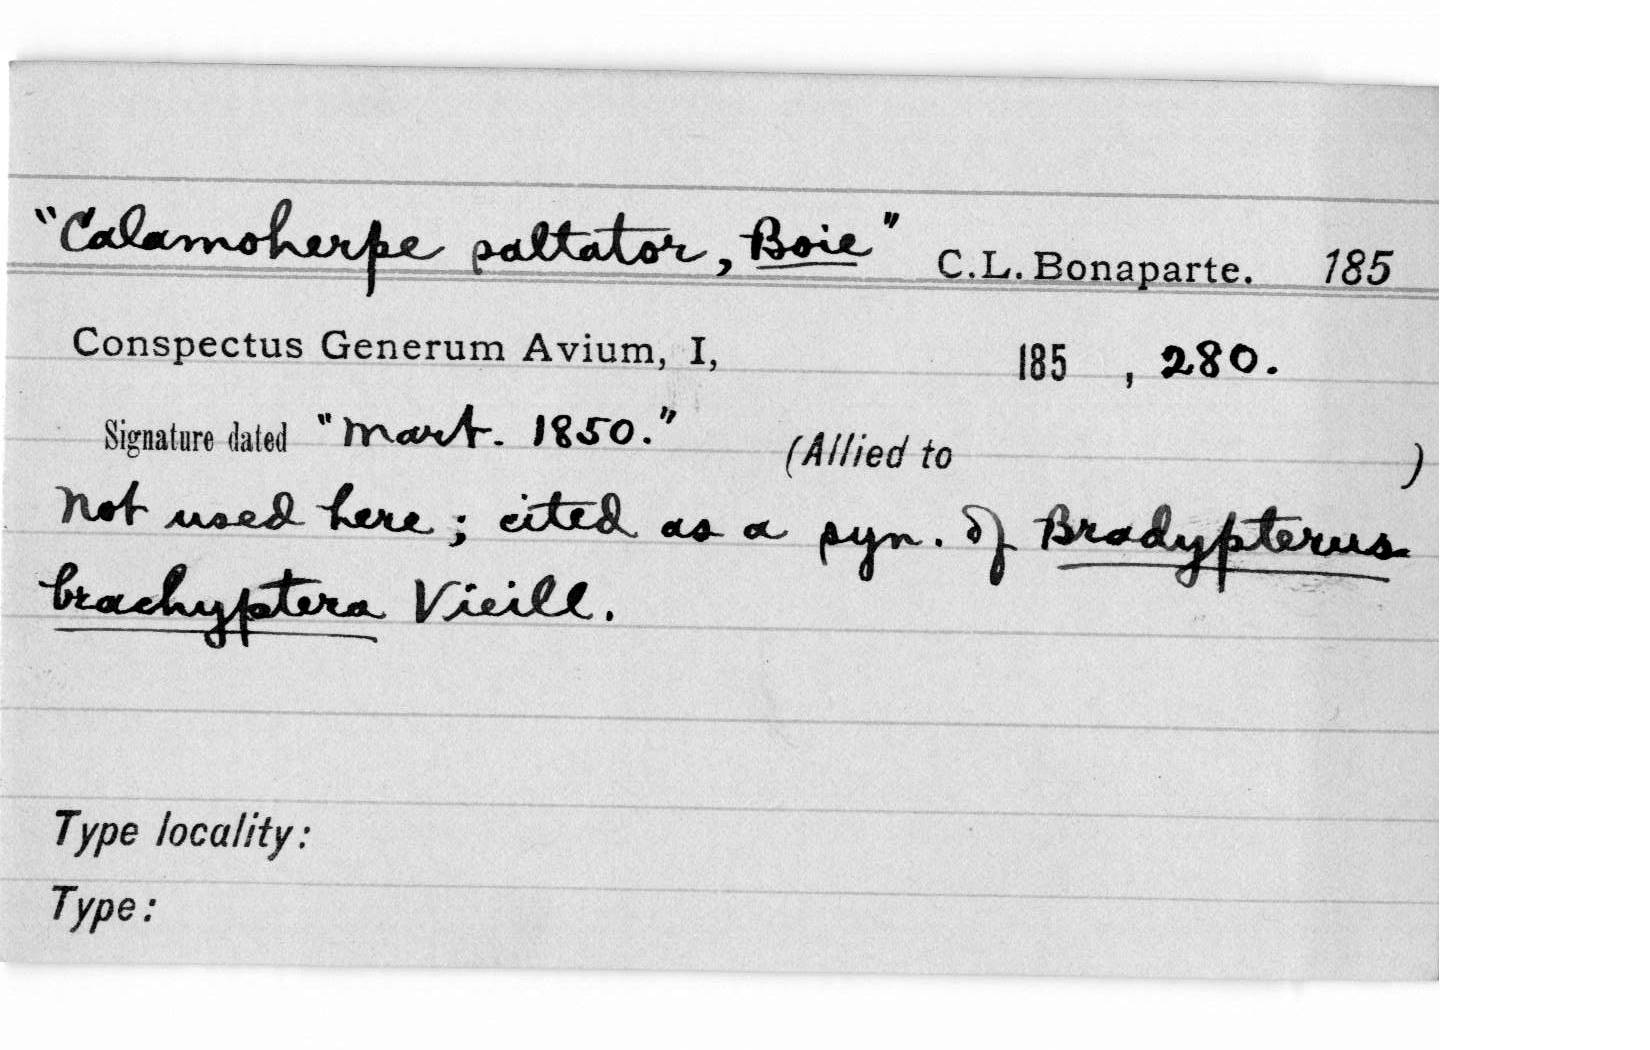 "Calamoherpe saltator, Boie" C.L. Bonaparte. 185
Conspectus Generum Avium, I, 185 , 280.
Signature dated "Mart. 1850." (Allied to )
Not used here; cited as a syn. of Bradypterus
brachyptera Vieill.
Type locality:
Type: